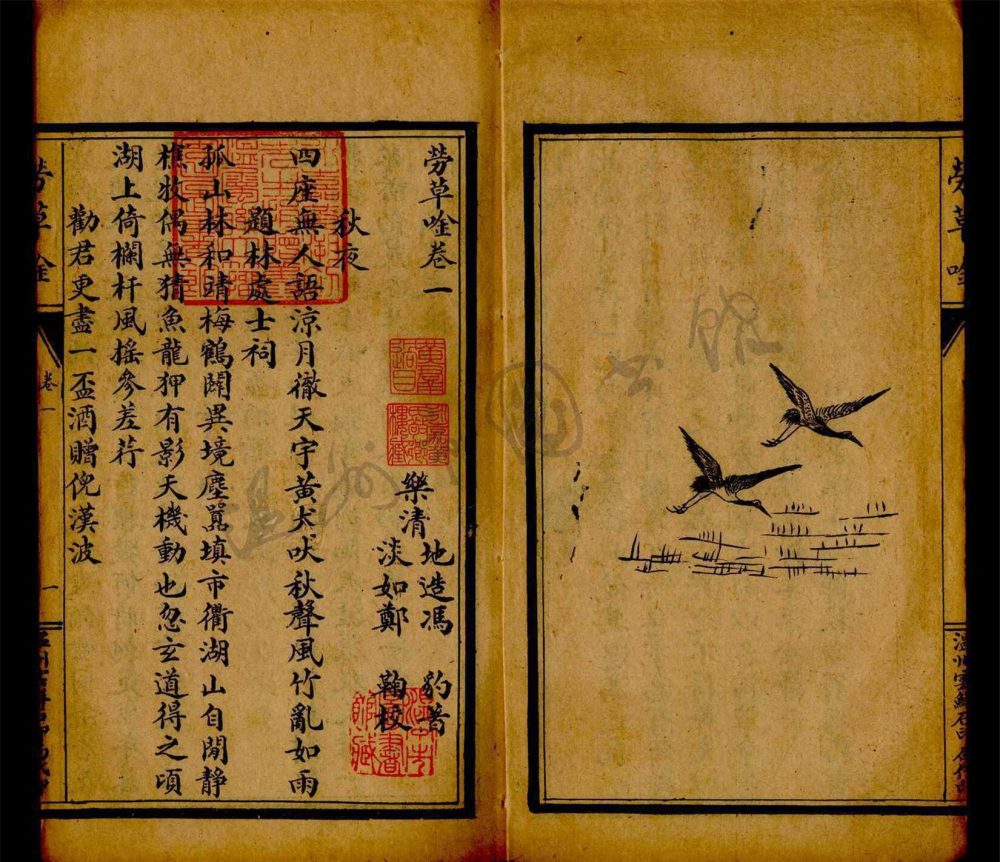 勞草唫
勞草唫卷一
樂清
地造馮 豹著
淡如鄭 鞠校
秋夜
四座無人語涼月徹天宇黃犬吠秋聲風竹亂如雨
題林處士祠
孤山林和靖梅鶴闢異境塵囂填市衢湖山自閒靜
樵牧偶無猜魚龍狎有影天機動也忽玄道得之頃
湖上倚欄杆風搖參差荇
勸君更盡一盃酒贈倪漢波
卷一
一